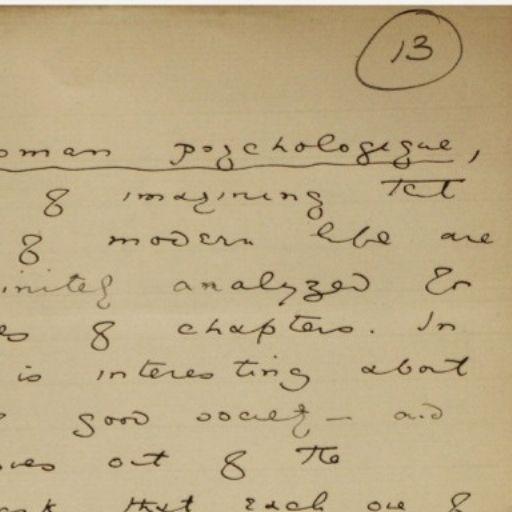 13
oman psychologique,
of imagining that
of modern life are
initely analyzed for
es of chapters. In
is interesting about
good society — and
oves out of the
ask that each one of